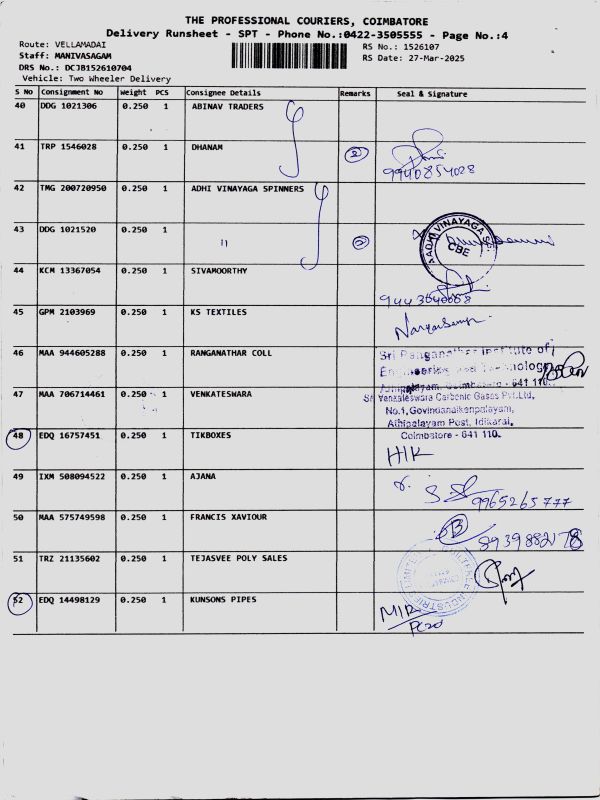 THE PROFESSIONAL COURIERS, COIMBATORE
Delivery Runsheet - SPT - Phone No.:0422-3505555 - Page No.:4
Route: VELLAMADAI
RS No.: 1526107
Staff: MANIVASAGAM
RS Date: 27-Mar-2025
DRS No.: DCJB152610704
Vehicle: Two Wheeler Delivery
S No Consignment No Weight PCS Consignee Details Remarks Seal & Signature
40 DDG 1021306 0.250 1 ABINAV TRADERS
41 TRP 1546028 0.250 1 DHANAM 2
9940854028
42 TMG 200720950 0.250 1 ADHI VINAYAGA SPINNERS
43 DDG 1021520 0.250 1 11 2
AADHI VINAYAGA
CBE
44 KCM 13367054 0.250 1 SIVAMOORTHY
45 GPM 2103969 0.250 1 KS TEXTILES
46 MAA 944605288 0.250 1 RANGANATHAR COLL
Sri Ranganathar Institute of
Engineering and Technology
Athipalayam, Coimbatore - 641 110.
47 MAA 706714461 0.250 1 VENKATESWARA
Sri Venkateswara Carbonic Gases Pvt.Ltd,
No.1, Govindanaikenpalayam,
Athipalayam Post, Idikarai,
Coimbatore - 641 110.
48 EDQ 16757451 0.250 1 TIKBOXES
HIK
49 IXM 508094522 0.250 1 AJANA
9965265777
50 MAA 575749598 0.250 1 FRANCIS XAVIOUR
B
8939882178
51 TRZ 21135602 0.250 1 TEJASVEE POLY SALES
52 EDQ 14498129 0.250 1 KUNSONS PIPES